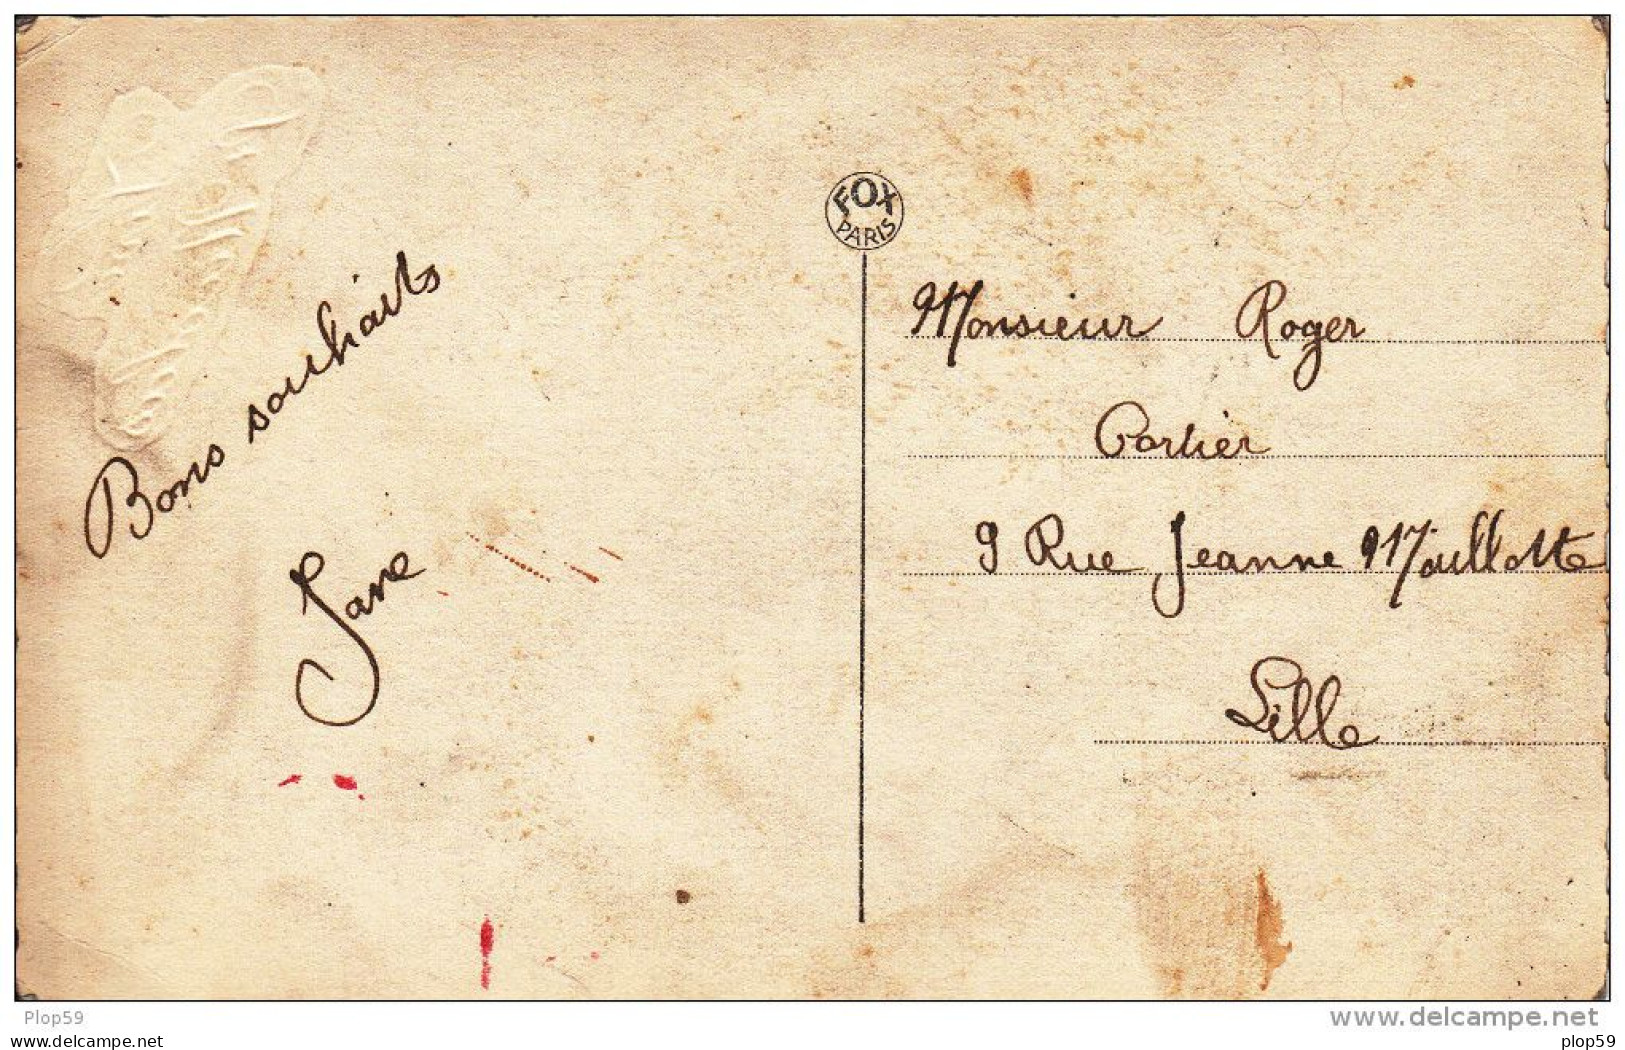 FOX
PARIS
Bons souhaits
Jane
Monsieur Roger
Carlier
9 Rue Jeanne Maillotte
Lille
Plop59
www.delcampe.net
plop59